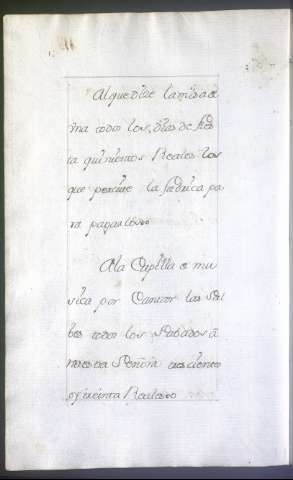 Al que dize la missa de
vna todos los dias de fies
ta quinientos Reales los
que perciue la fabrica pa
ra pagarlos
A la Capilla de mu
sica por Cantar las Sal
bes todos los Sabados a
nuestra Señora duscientos
y treinta Reales